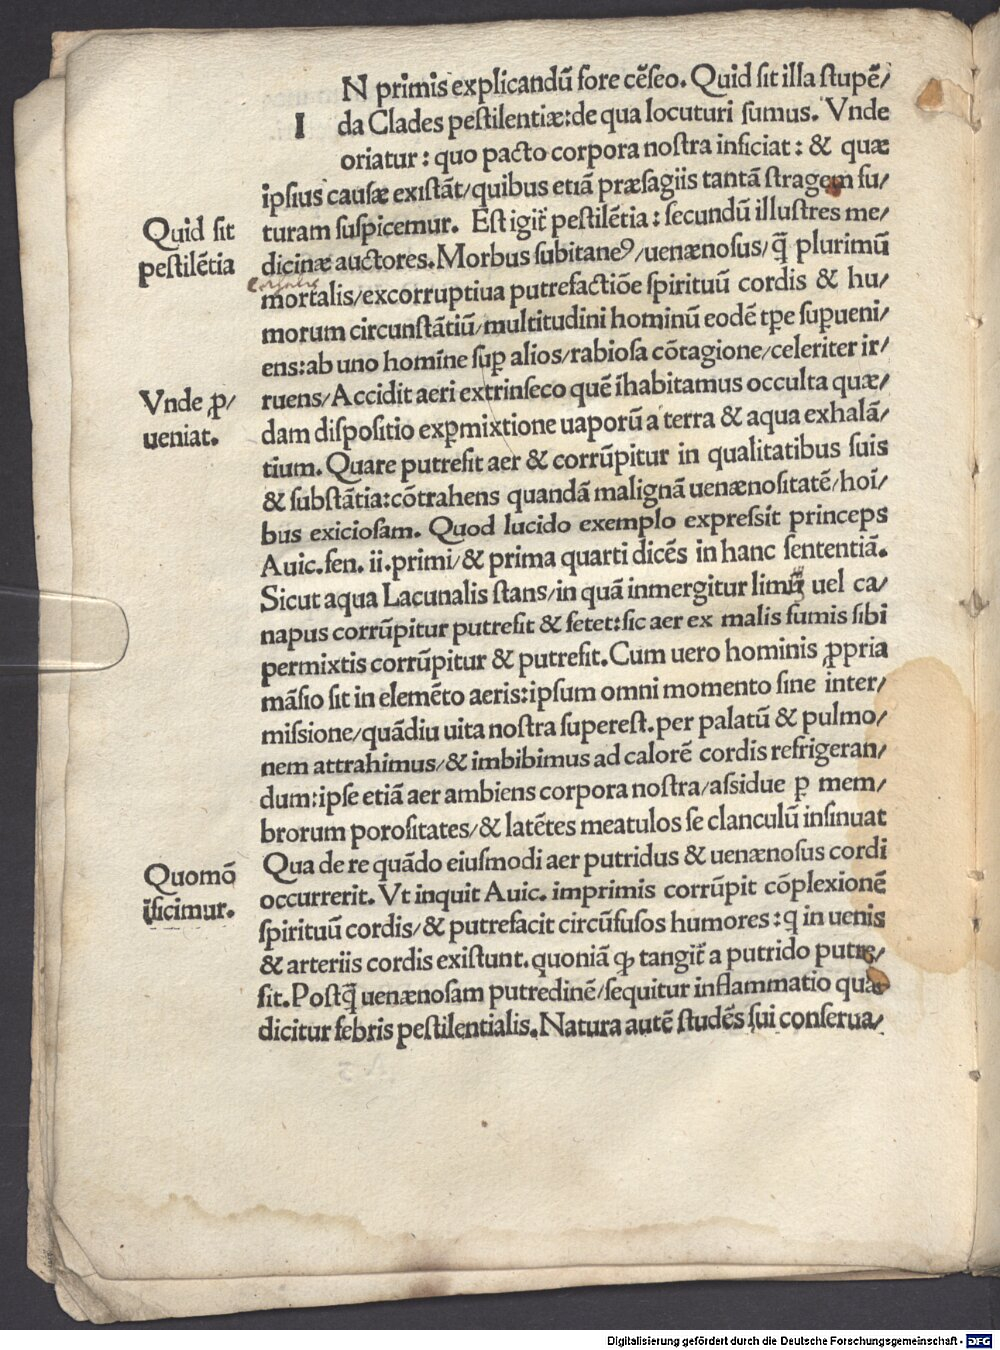 IN primis explicandū fore cēseo. Quid sit illa stupē/
da Clades pestilentiæ: de qua locuturi sumus. Vnde
oriatur: quo pacto corpora nostra inficiat: & quæ
ipsius causæ existāt/quibus etiā præsagiis tantā stragem fu/
Quid sit
pestilētia
turam suspicemur. Est igit᷑ pestilētia: secundū illustres me/
dicinæ auctores. Morbus subitaneꝰ/uenænosus/q̄ plurimū
mortalis/excorruptiua putrefactiōe spirituū cordis & hu/
morum circunstātiū/multitudini hominū eodē tp̄e sup̱ueni/
ens: ab uno homine sup̱ alios/rabiosa cōtagione/celeriter ir/
Vnde ꝓ/
ueniat.
ruens/Accidit aeri extrinseco quē īhabitamus occulta quæ/
dam dispositio exp̱mixtione uaporū a terra & aqua exhalā/
tium. Quare putrefit aer & corrūpitur in qualitatibus suis
& substātia: cōtrahens quandā malignā uenænositatē/hoī/
bus exiciosam. Quod lucido exemplo expressit princeps
Auic. fen. ii. primi/& prima quarti dicēs in hanc sententiā.
Sicut aqua Lacunalis stans/in quā inmergitur limū uel ca/
napus corrūpitur putrefit & fetet: sic aer ex malis fumis sibi
permixtis corrūpitur & putrefit. Cum uero hominis ꝓpria
māsio sit in elemēto aeris: ipsum omni momento sine inter/
missione/quādiu uita nostra superest. per palatū & pulmo/
nem attrahimus/& imbibimus ad calorē cordis refrigeran/
dum: ipse etiā aer ambiens corpora nostra/assidue p̱ mem/
brorum porositates/& latētes meatulos se clanculū insinuat
Quomō
īficimur.
Qua de re quādo eiusmodi aer putridus & uenænosus cordi
occurrerit. Vt inquit Auic. imprimis corrūpit cōplexionē
spirituū cordis/& putrefacit circūfusos humores: q in uenis
& arteriis cordis existunt. quoniā ꝙ tangit᷑ a putrido putre/
fit. Postq̄ uenænosam putredinē/sequitur inflammatio quæ
dicitur febris pestilentialis. Natura autē studēs sui conserua/
Digitalisierung gefördert durch die Deutsche Forschungsgemeinschaft - DFG